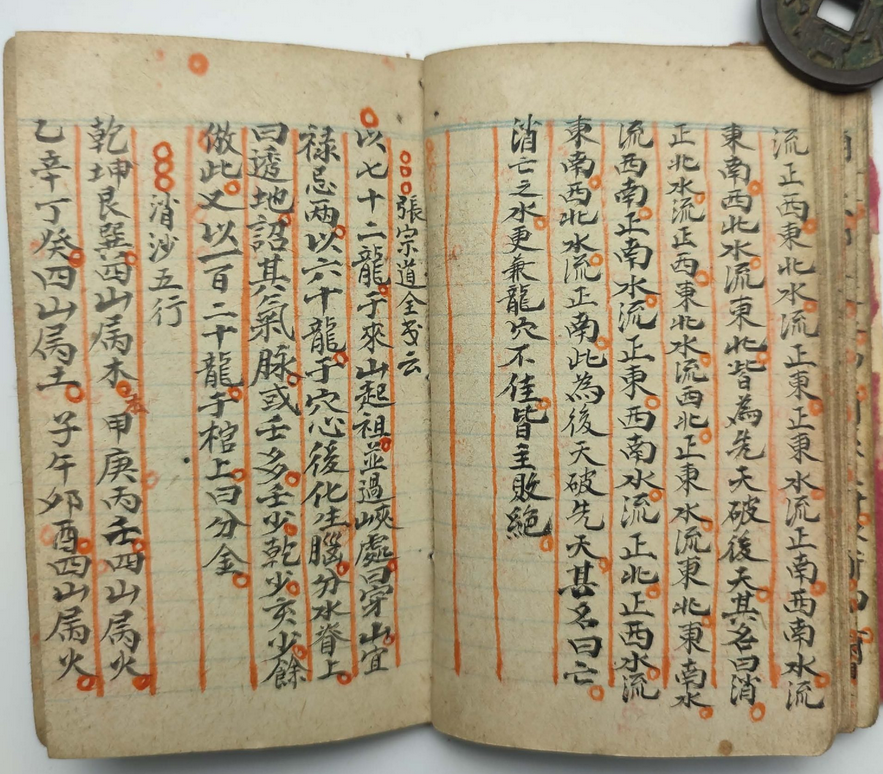 流正西東北水流正東正東水流正南西南水流
東南西北水流東北皆為先天破後天其名曰消
正北水流正西東北水流西北正東水流東北東南水
流西南正南水流正東西南水流正北正西水流
東南西北水流正南此為後天破先天其名曰亡
消亡之水更兼龍穴不佳皆主敗絕
張宗道全云
以七十二龍于來山起祖並過峽處曰穿山宜
祿忌兩以六十龍于穴心後化生腦分水脊上
曰透地詔其氣脉或壬多壬少乾少亥少餘
倣此又以一百二十龍于棺上曰分金
消沙五行
乾坤艮巽四山属木甲庚丙壬四山属火
乙辛丁癸四山属土子午卯酉四山属火